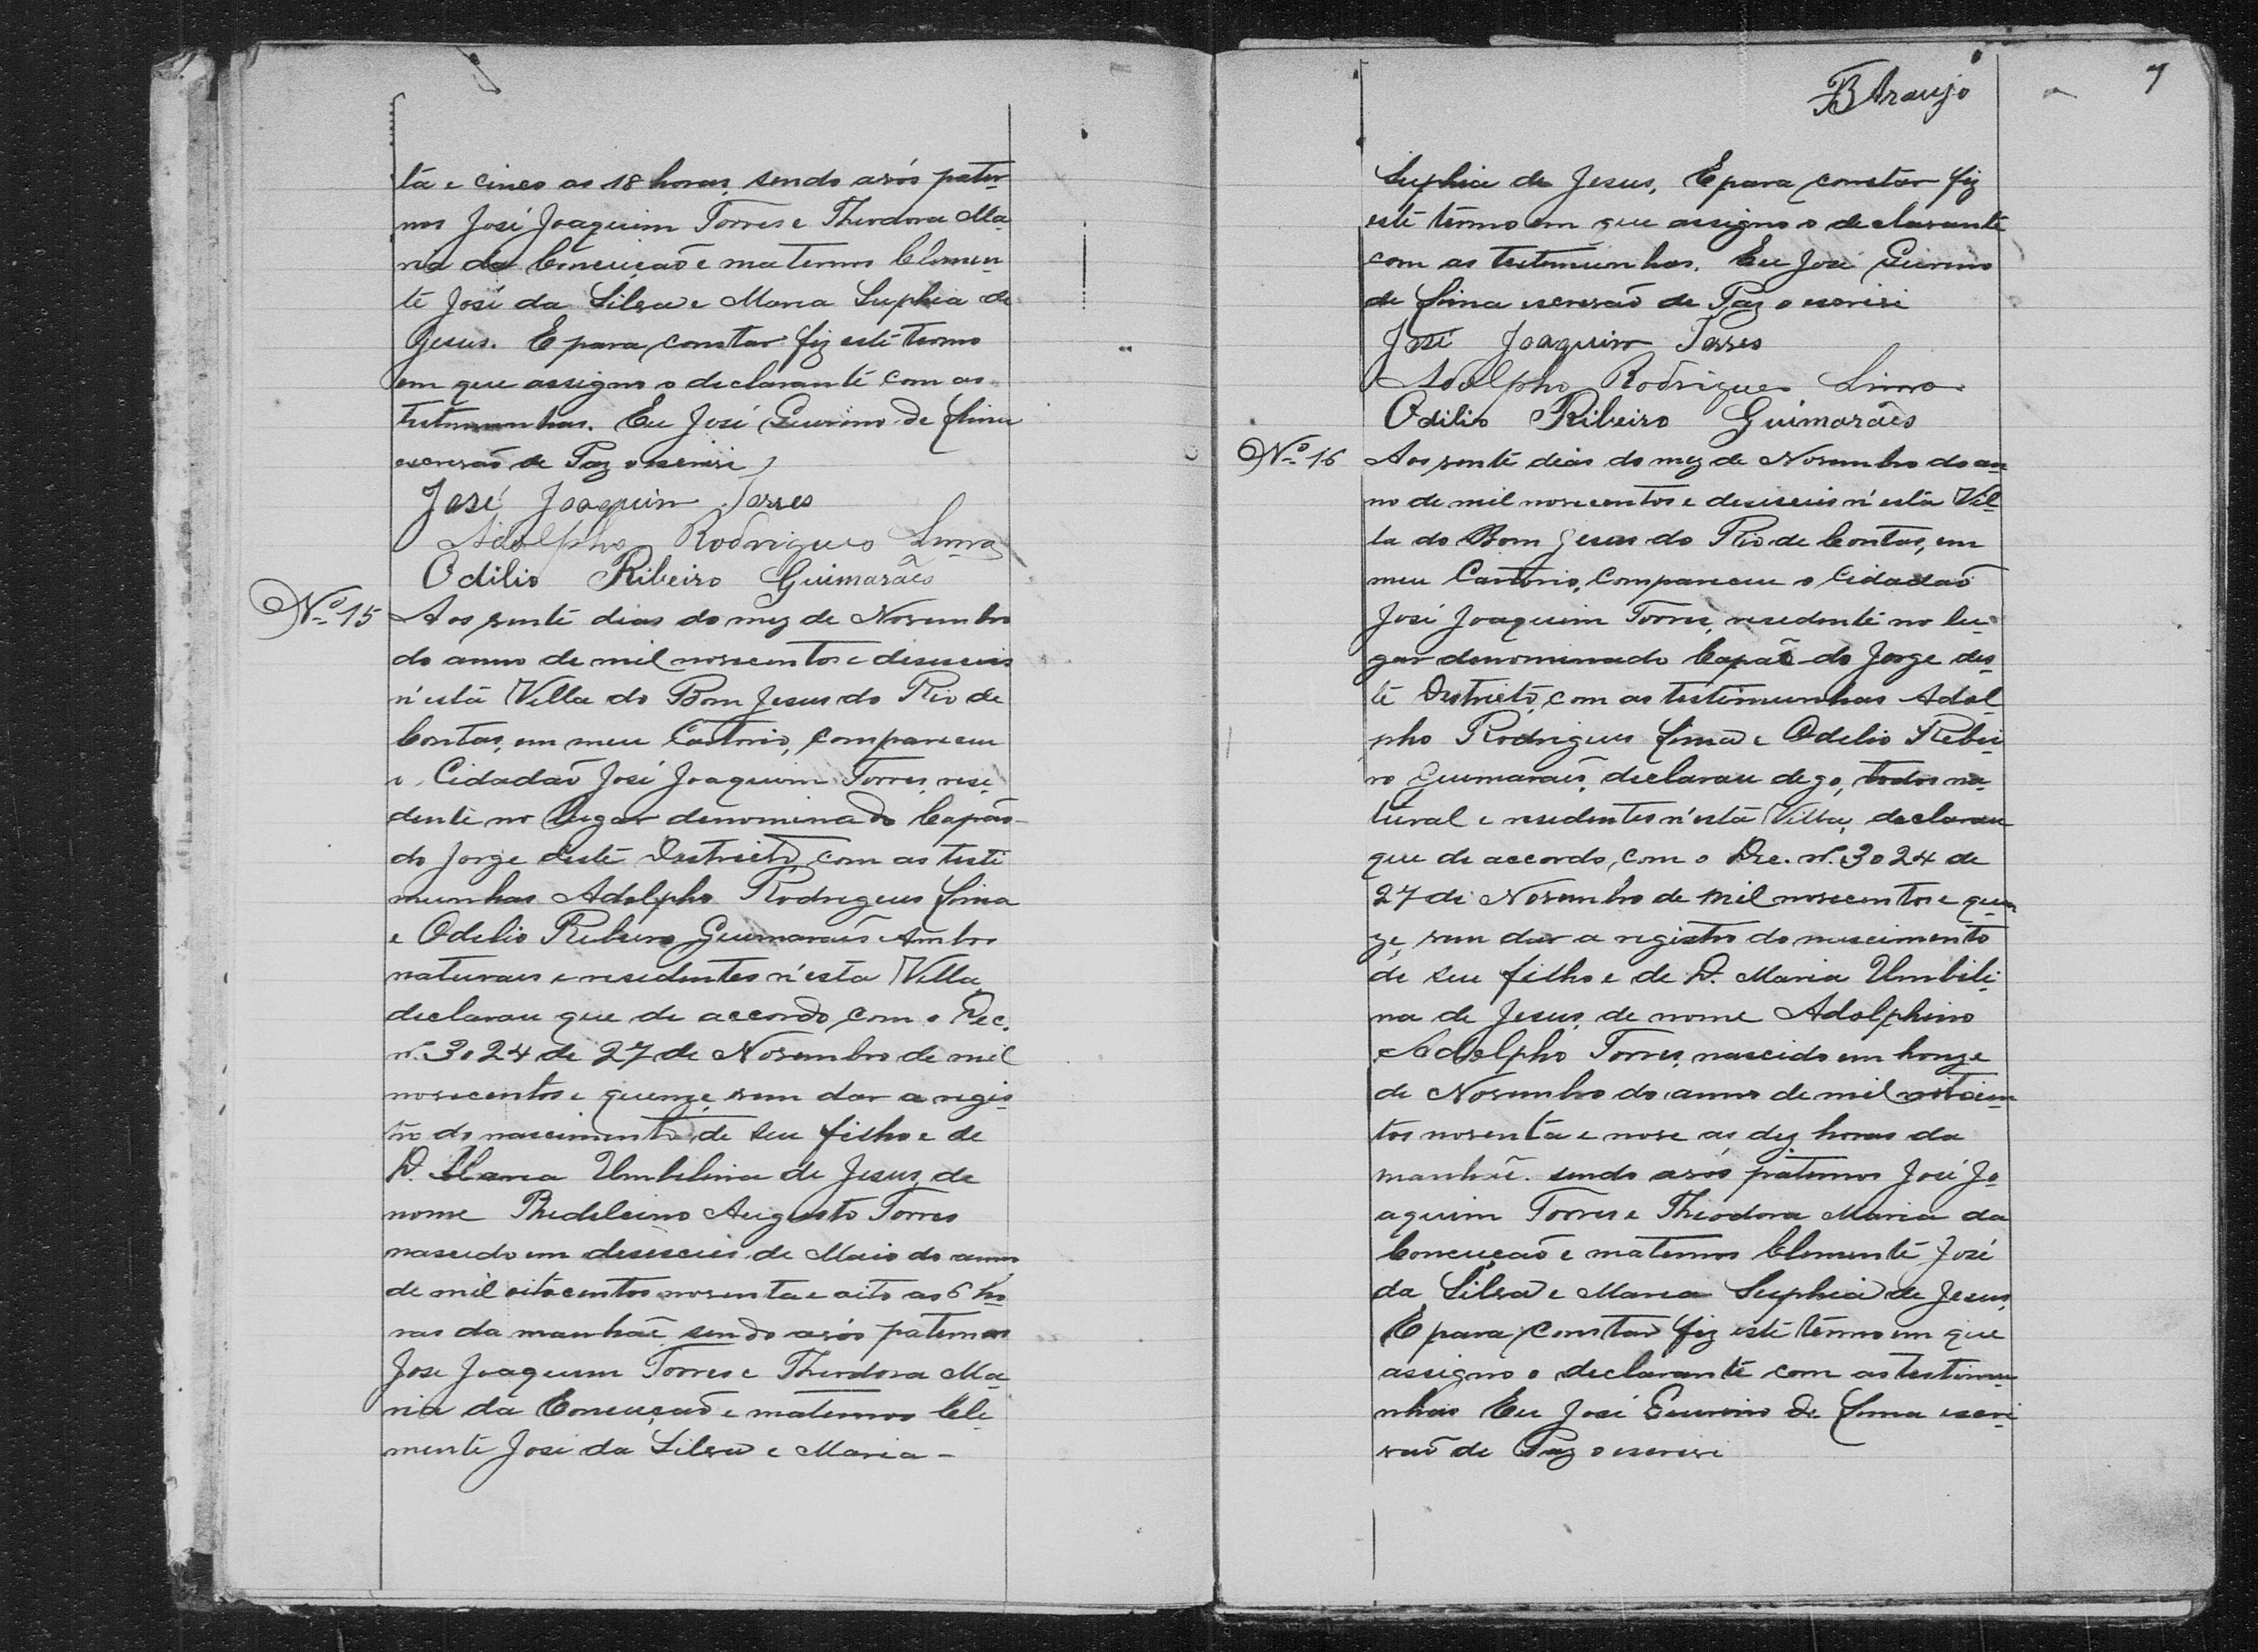 tá e cinco as 18 horas, sendo avós pater-
nos José Joaquim Torres e Theodora Ma-
ria da Conceição e maternos Clemen-
te José da Silva e Maria Suphia de
Jesus. E para constar fiz este termo
em que assigno o declarante com as
testemunhas. Eu José Guirino de Lima
escrivão de Paz o escrivi
José Joaquim Torres
Adolpho Rodrigues Lima
Odilio Ribeiro Guimarães
Nº 15 Aos vinte dias do mez de Novembro
do anno de mil novecentos e deseseis
n'esta Villa do Bom Jesus do Rio de
Contas, em meu Cartorio, compareceu
o Cidadão José Joaquim Torres, resi-
dente no lugar denominado Capão
do Jorge deste Destricto, com as teste
munhas Adolpho Rodrigues Lima
e Odelio Ribeiro Guimarães Ambos
naturaes e residentes n'esta Villa,
declarou que de accordo com o Dec.
nº. 3024 de 27 de Novembro de mil
novecentos e quinze, vem dar a regis-
tro do nascimento de seu filho e de
D. Maria Umbelina de Jesus, de
nome Augusto Torres
nascido em deseseis de Maio do anno
de mil oitocentos noventa e oito as 6 ho-
ras da manhãe sendo avós paternos
Jose Joaquim Torres e Theodora Ma-
ria da Conceição e maternos Cle-
mente José da Silva e Maria -
BAraujo
7
Suphia de Jesus. E para constar fiz
este termo em que assigno o declarante
com as testemunhas. Eu José Guirino
de Lima escrivão de Paz o escrivi
José Joaquim Torres
Adolpho Rodrigues Lima
Odilio Ribeiro Guimarães
Nº 16 Aos vinte dias do mez de Novembro do an-
no de mil novecentos e deseseis n'esta Vil-
la do Bom Jesus do Rio de Contas, em
meu Cartorio, compareceu o Cidadão
José Joaquim Torres, residente no lu-
gar denominado Capão do Jorge des-
te Destricto, com as testemunhas Adol-
pho Rodrigues Lima e Odelio Ribei-
ro Guimarães, declarou digo, todos na-
tural e residentes n'esta Villa, declarou
que de accordo, com o Dec. nº. 3024 de
27 de Novembro de mil novecentos e quin-
ze, vem dar a registro do nascimento
de seu filho e de D. Maria Umbili-
na de Jesus, de nome Adolphino
Adolpho Torres, nascido em honze
de Novembro do anno de mil oitocen-
tos noventa e nove as dez horas da
manhãe. sendo avós paternos José Jo-
aquim Torres e Theodora Maria da
Conceição e maternos Clemente José
da Silva e Maria Suphia de Jesus,
E para constar fiz este termo em que
assigno o declarante com as testemu-
nhas Eu José Guirino de Lima escri-
vão de Paz o escrivi